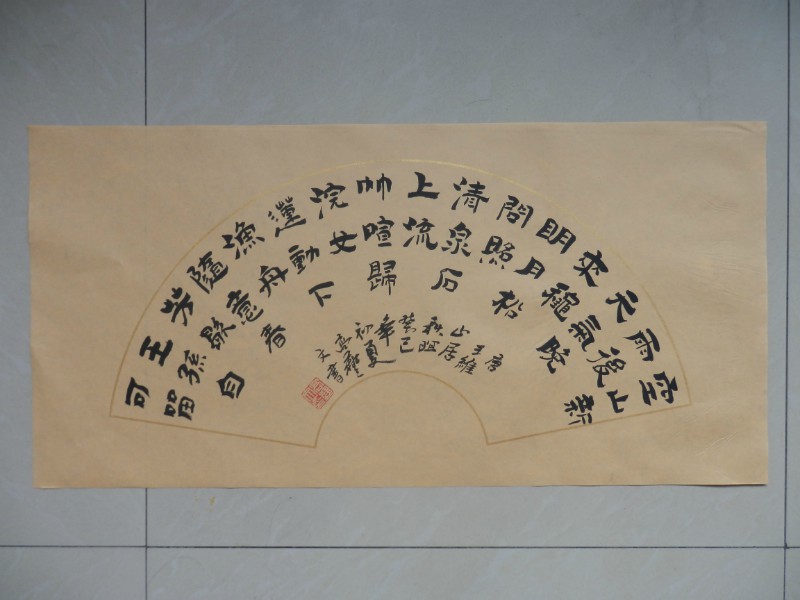 空山新
雨後
天氣晚
來穐
明月松
間照
清泉石
上流
竹喧歸
浣女
蓮動下
漁舟
隨意春
芳歇
王孫自
可留
唐
王維
山居
秋暝
癸巳
年
初夏
文書